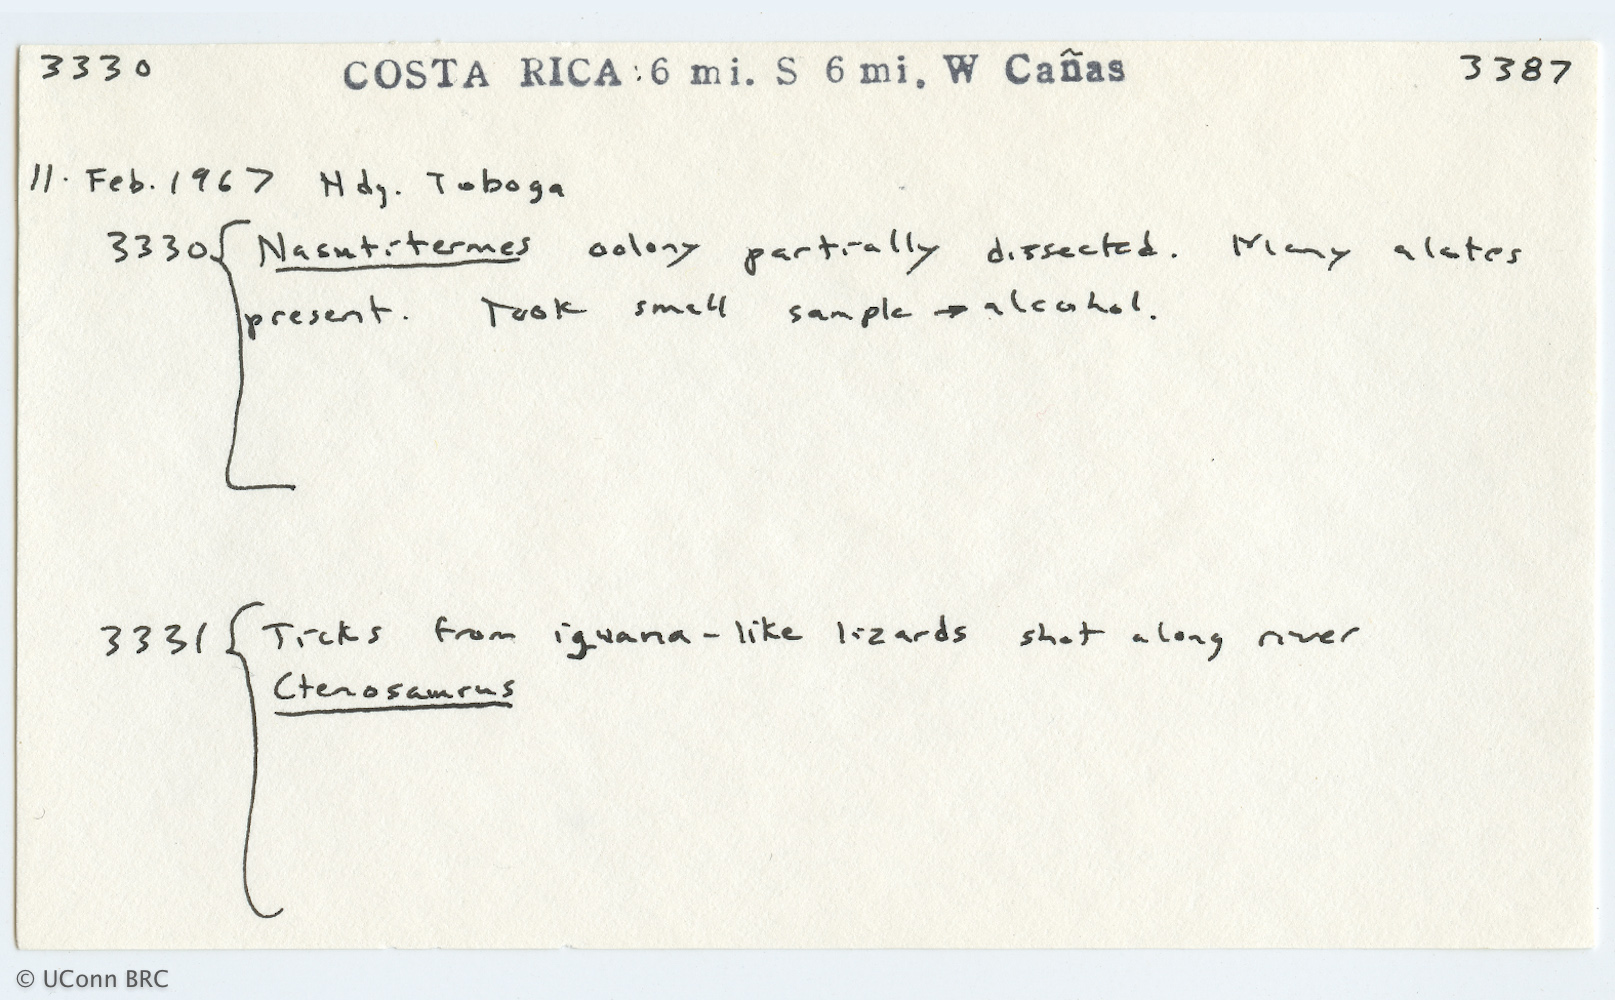 3330 COSTA RICA: 6 mi. S 6 mi. W Cañas 3387
11. Feb. 1967 Hdg. Taboga
3330 Nasutitermes colony partially dissected. Many alates
present. Took small sample → alcohol.
3331 Ticks from iguana-like lizards shot along river
Ctenosaurus
© UConn BRC